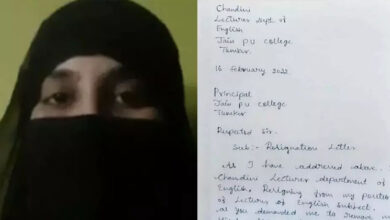 Chandini
Lecturer dept of
English
Jain p.u college
Tumkur.
16 February 2022
Principal
Jain p.u college
Tumkur
Respated Sir.
Sub:- Resignation Letter
As I have addressed above.
Chandini Lecturer department of
English. Resigning from my position
of Lecturer of English Subject.
as you demanded me to remove my